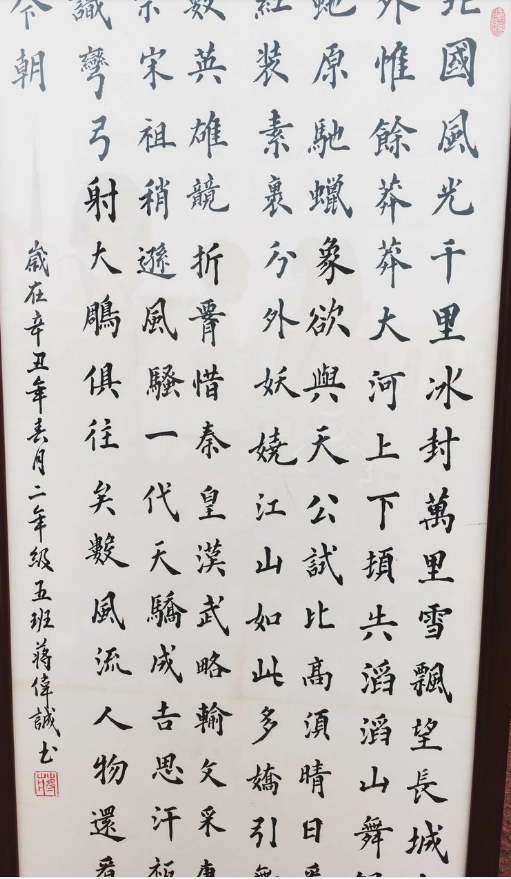 北國風光千里冰封萬里雪飄望長城
外惟餘莽莽大河上下頓失滔滔山舞
蛇原馳蠟象欲與天公試比高須晴日
紅裝素裹分外妖嬈江山如此多嬌引無
數英雄競折惜秦皇漢武略輸文采唐
宗宋祖稍遜風騷一代天驕成吉思汗
識彎弓射大鵰俱往矣數風流人物還看
今朝
歲在辛丑年春月二年級五班蔣偉誠书